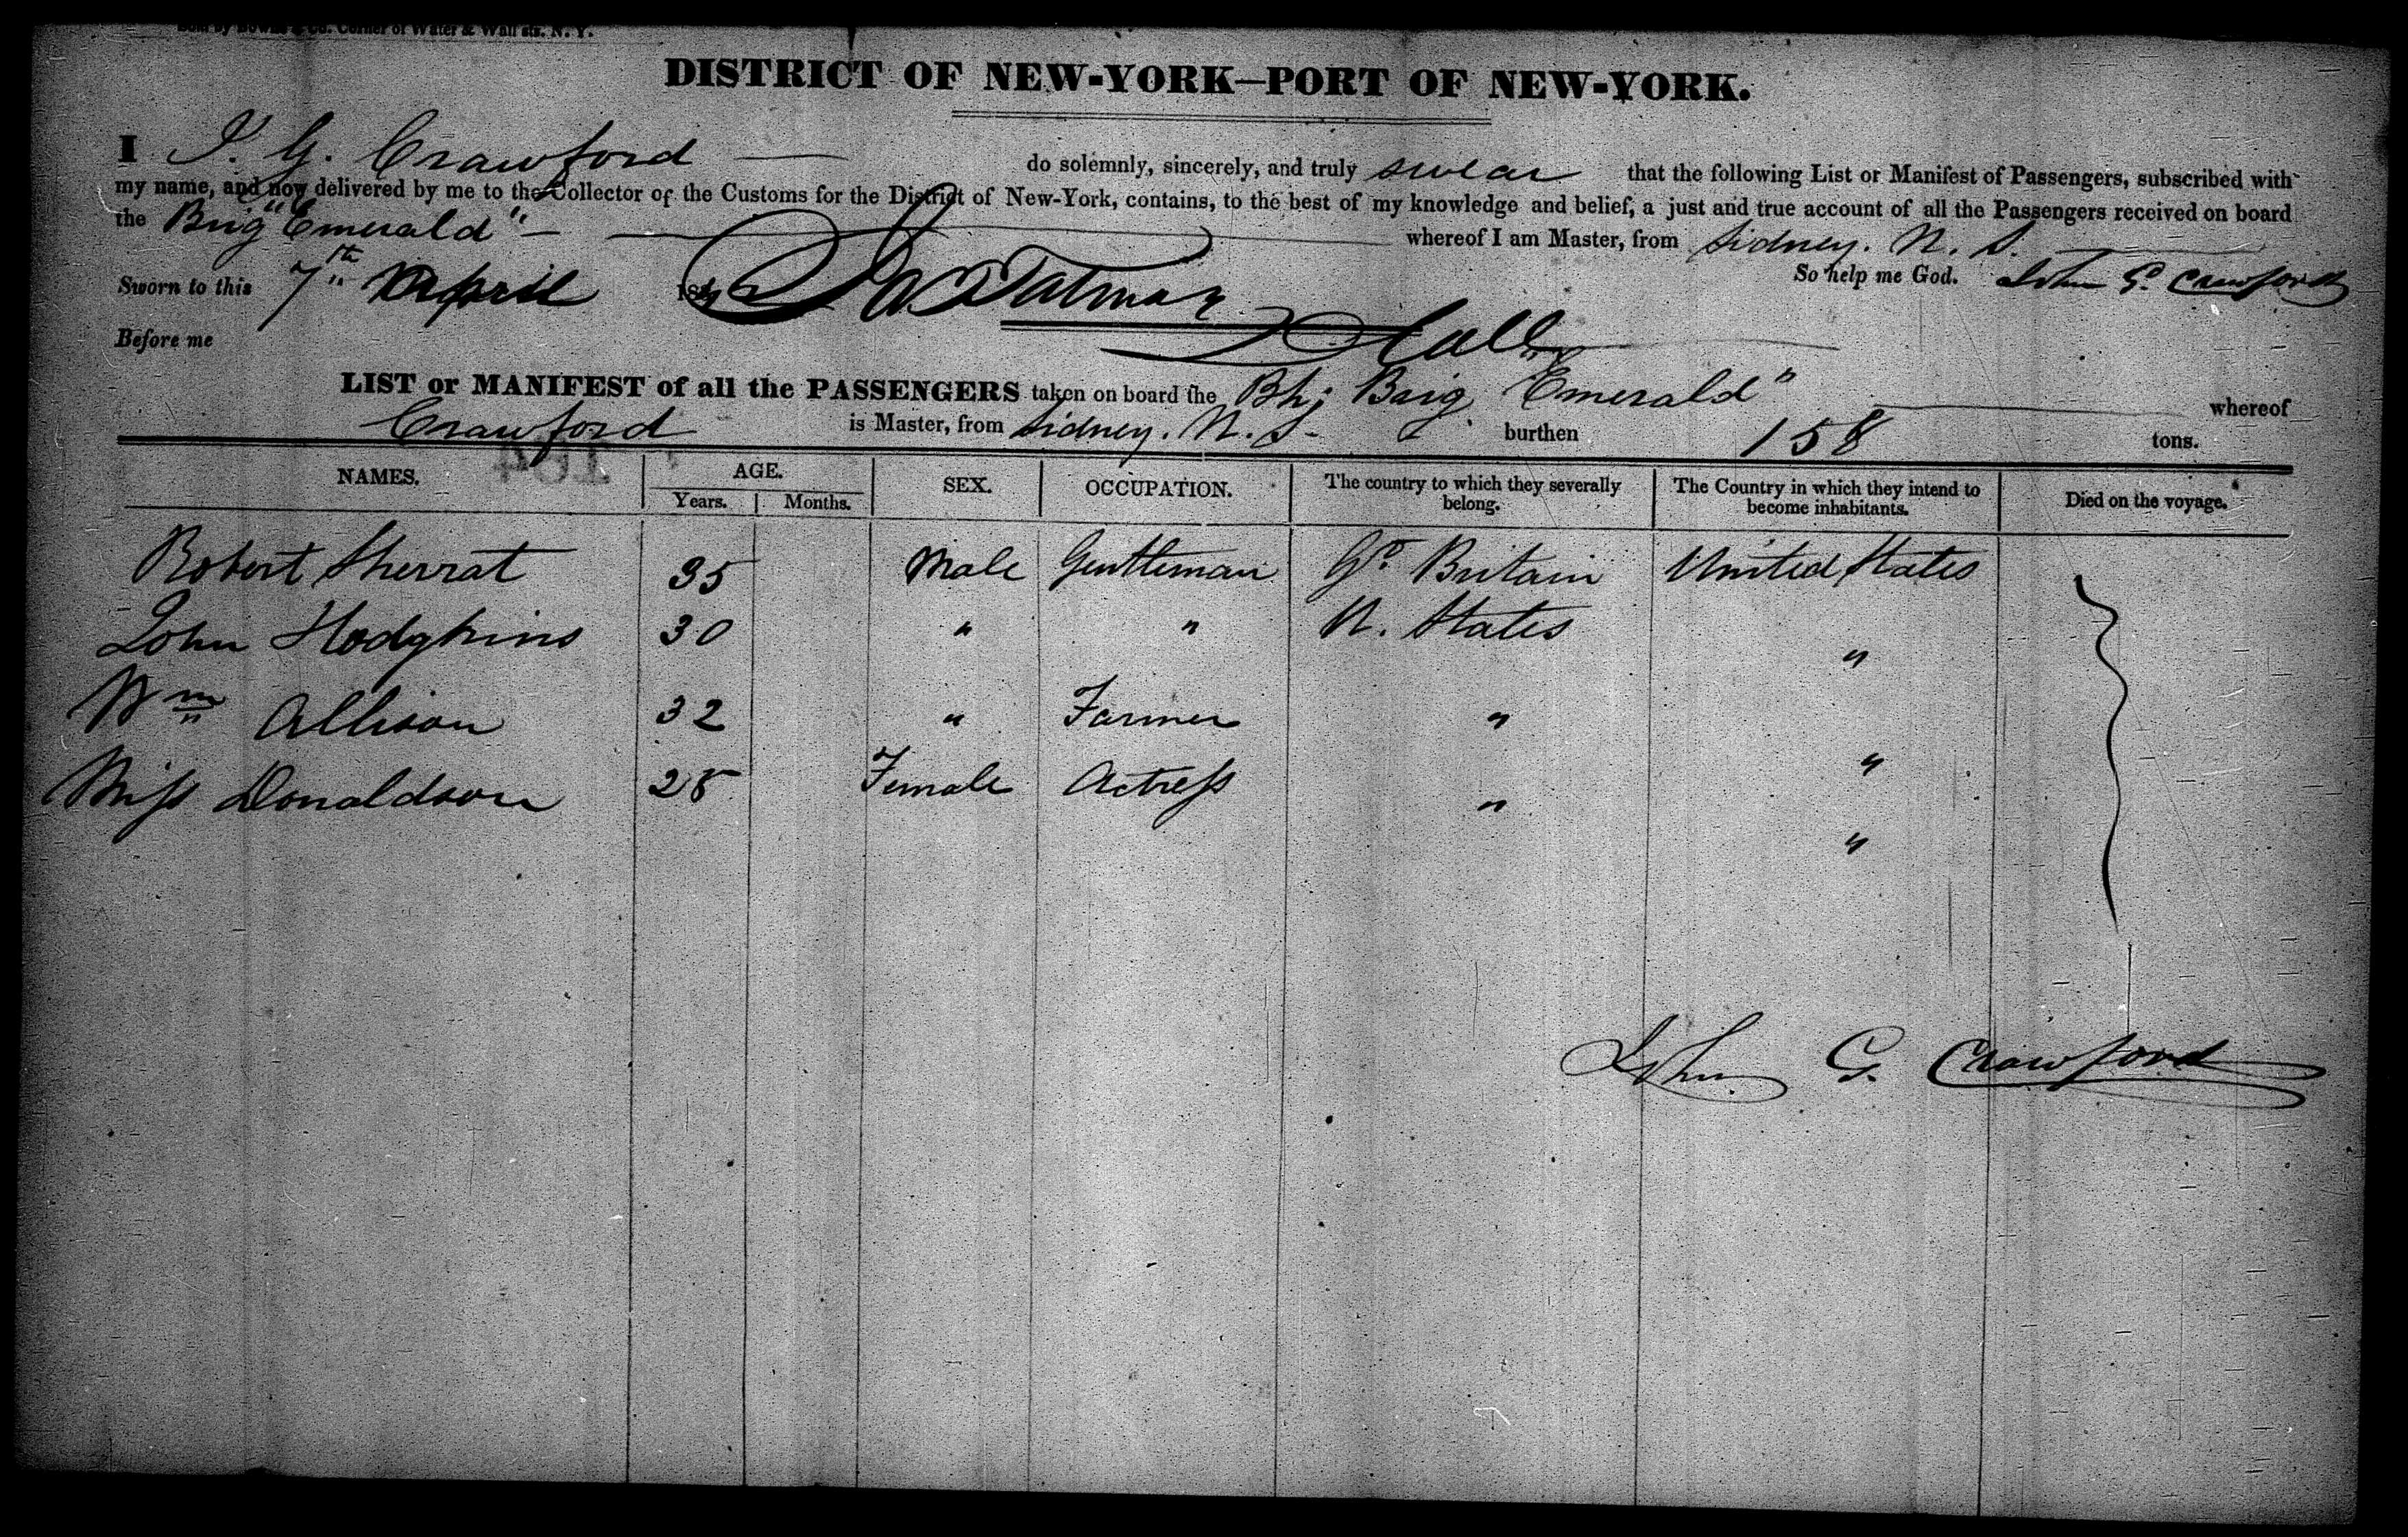 Sold by Bowne & Co. Corner of Water & Wall sts. N. Y.
DISTRICT OF NEW-YORK—PORT OF NEW-YORK.
I J. G. Crawford do solemnly, sincerely, and truly swear that the following List or Manifest of Passengers, subscribed with
my name, and now delivered by me to the Collector of the Customs for the District of New-York, contains, to the best of my knowledge and belief, a just and true account of all the Passengers received on board
the Brig "Emerald" whereof I am Master, from Sidney. N. S.
Sworn to this 7th April 18 So help me God. John G. Crawford
Before me
LIST or MANIFEST of all the PASSENGERS taken on board the Bh; Brig "Emerald" whereof
Crawford is Master, from Sidney. N. S. burthen 158 tons.
NAMES. AGE. SEX. OCCUPATION. The country to which they severally belong. The Country in which they intend to become inhabitants. Died on the voyage.
Years. Months.
Robert Sherrat 35 Male Gentleman Gt. Britain United States
John Hodgkins 30 " " U. States "
Wm Allison 32 " Farmer " "
Miss Donaldson 28 Female Actress " "
John G. Crawford